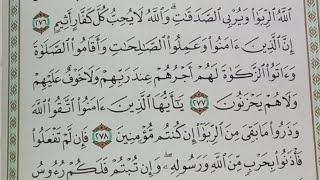 ٱللَّهُ ٱلرِّبَوٰا۟ وَيُرْبِى ٱلصَّدَقَـٰتِ ۗ وَٱللَّهُ لَا يُحِبُّ كُلَّ كَفَّارٍ أَثِيمٍ ٢٧٦
إِنَّ ٱلَّذِينَ ءَامَنُوا۟ وَعَمِلُوا۟ ٱلصَّـٰلِحَـٰتِ وَأَقَامُوا۟ ٱلصَّلَوٰةَ
وَءَاتَوُا۟ ٱلزَّكَوٰةَ لَهُمْ أَجْرُهُمْ عِندَ رَبِّهِمْ وَلَا خَوْفٌ عَلَيْهِمْ
وَلَا هُمْ يَحْزَنُونَ ٢٧٧ يَـٰٓأَيُّهَا ٱلَّذِينَ ءَامَنُوا۟ ٱتَّقُوا۟ ٱللَّهَ
وَذَرُوا۟ مَا بَقِىَ مِنَ ٱلرِّبَوٰٓا۟ إِن كُنتُم مُّؤْمِنِينَ ٢٧٨ فَإِن لَّمْ تَفْعَلُوا۟
فَأْذَنُوا۟ بِحَرْبٍ مِّنَ ٱللَّهِ وَرَسُولِهِۦ ۖ وَإِن تُبْتُمْ فَلَكُمْ رُءُوسُ